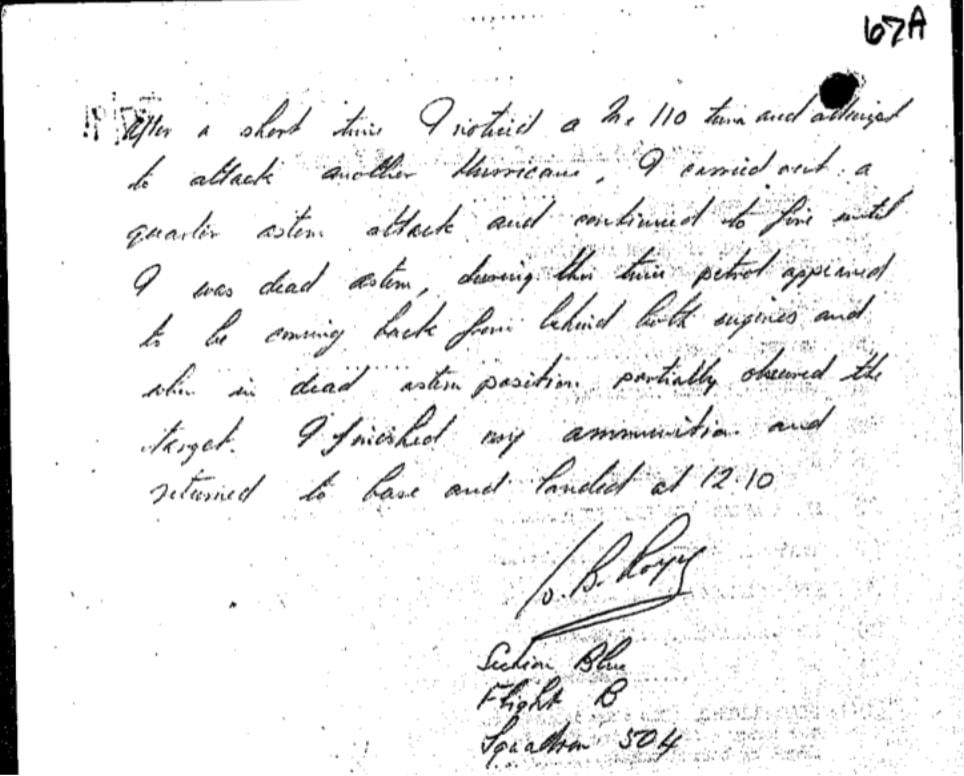 67A
After a short time I noticed a Me 110 turn and attempt
to attack another Hurricane, I carried out a
quarter astern attack and continued to fire until
I was dead astern, during this time petrol appeared
to be coming back from behind both engines and
when in dead astern position partially obscured the
target. I finished my ammunition and
returned to base and landed at 12.10
W. B. Royce
Section Blue
Flight B
Squadron 504